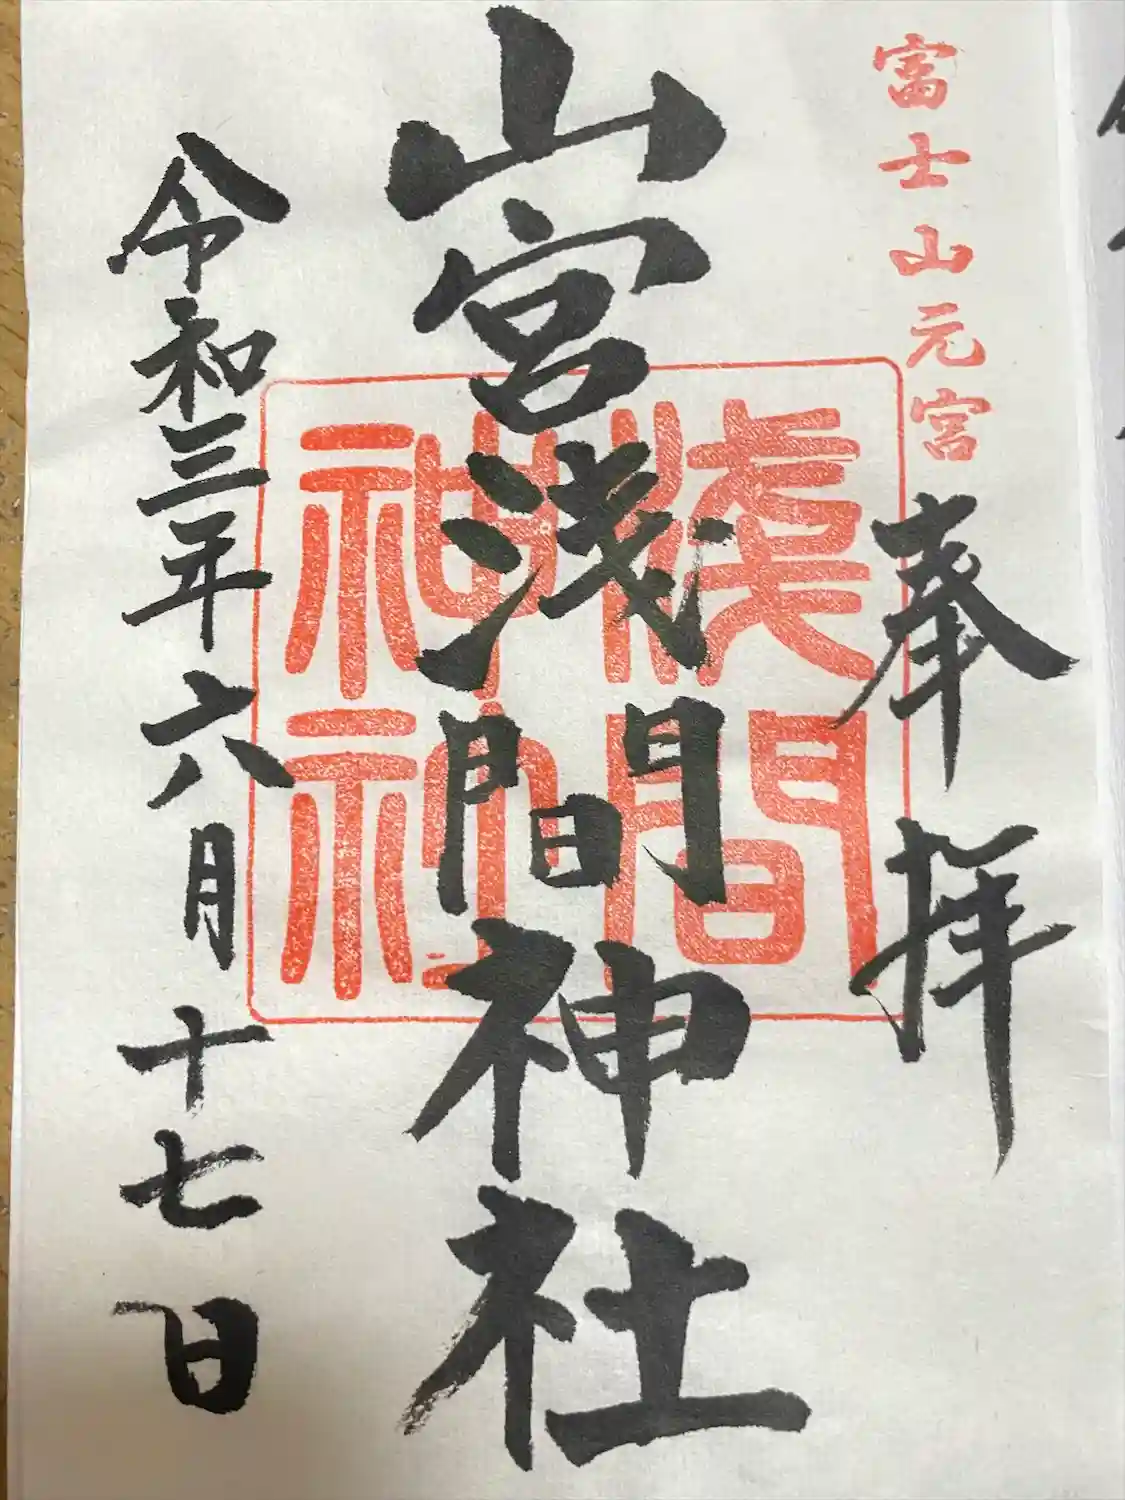 富士山元宮
奉拝
山宮浅間神社
淺間
神社
令和三年六月十七日